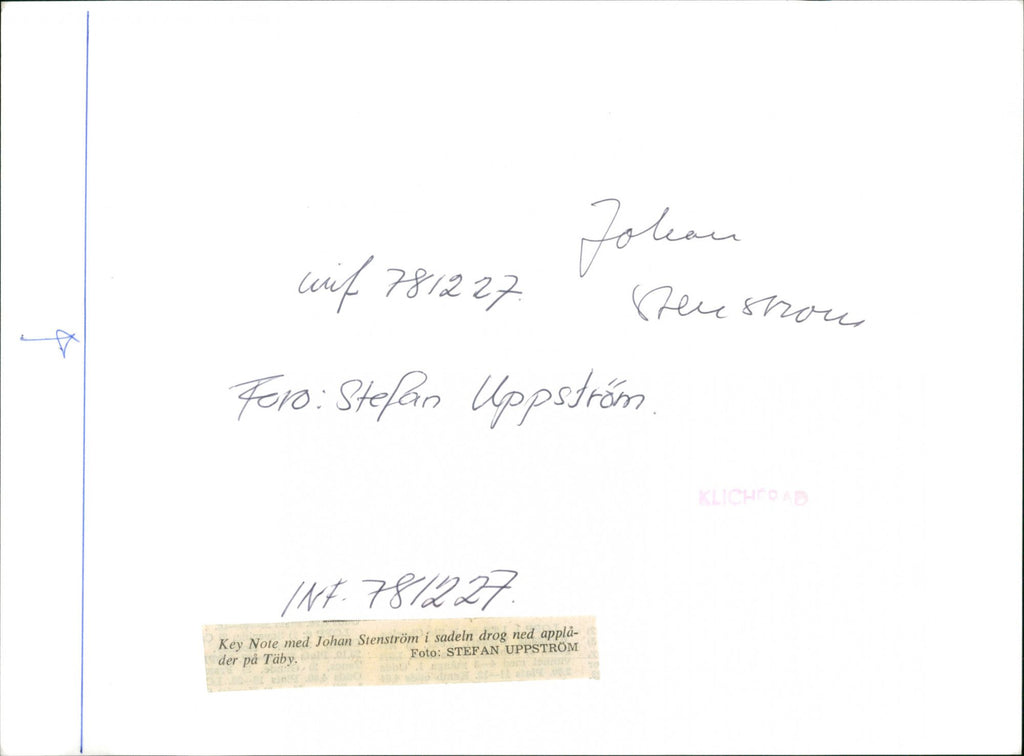 Johan
Stenstrom
inf 781227.
Foto: Stefan Uppström.
KLICHERAD
INF. 781227.
Key Note med Johan Stenström i sadeln drog ned applå-
der på Täby.
Foto: STEFAN UPPSTRÖM